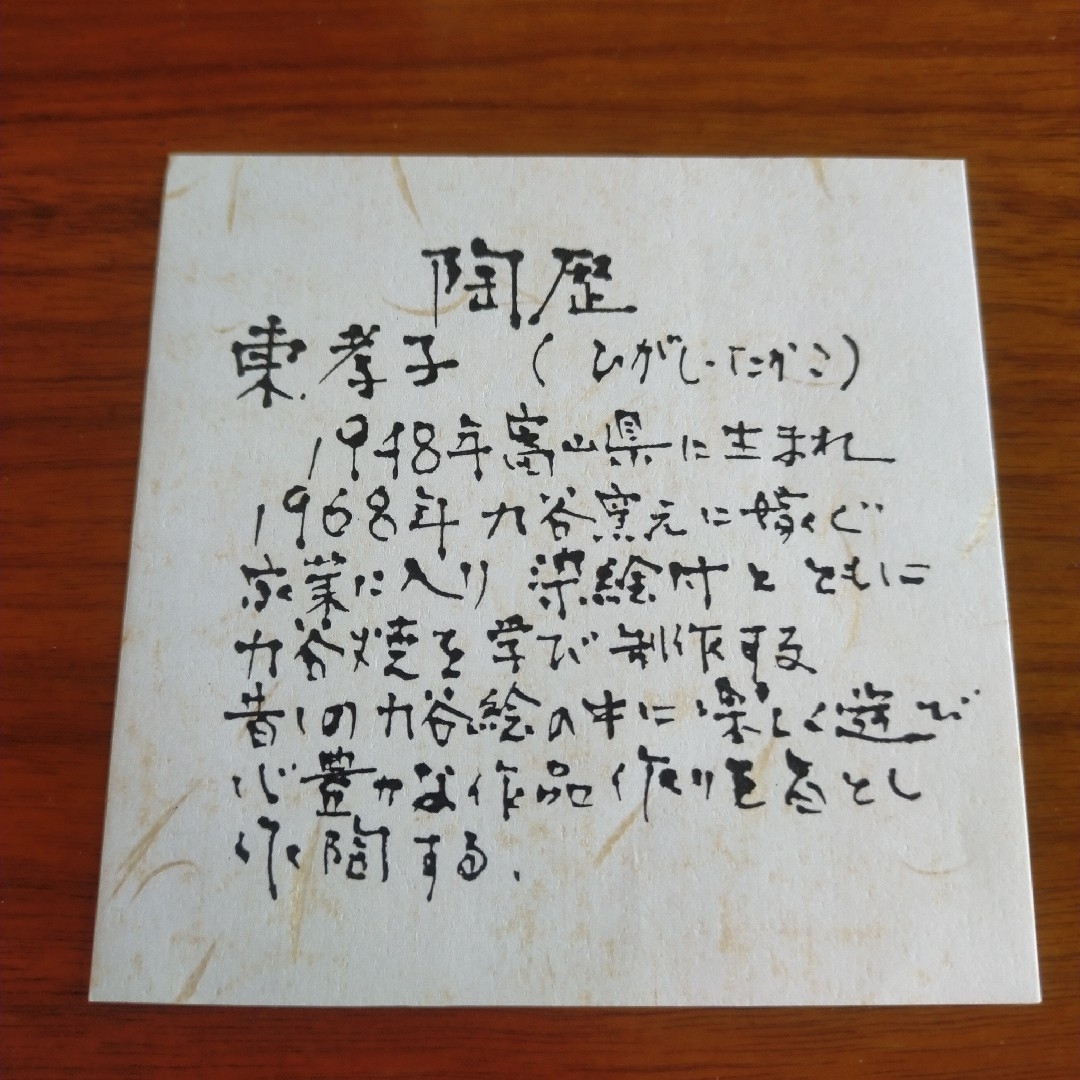 陶歴
東 孝子 (ひがし・たかこ)
1948年富山県に生まれ
1968年 九谷窯元に嫁ぐ
家業に入り 染絵付と ともに
九谷焼を 学び 制作する
昔しの 九谷絵の中に 楽しく遊び
心豊かな作品 作りを 志とし
作陶する.